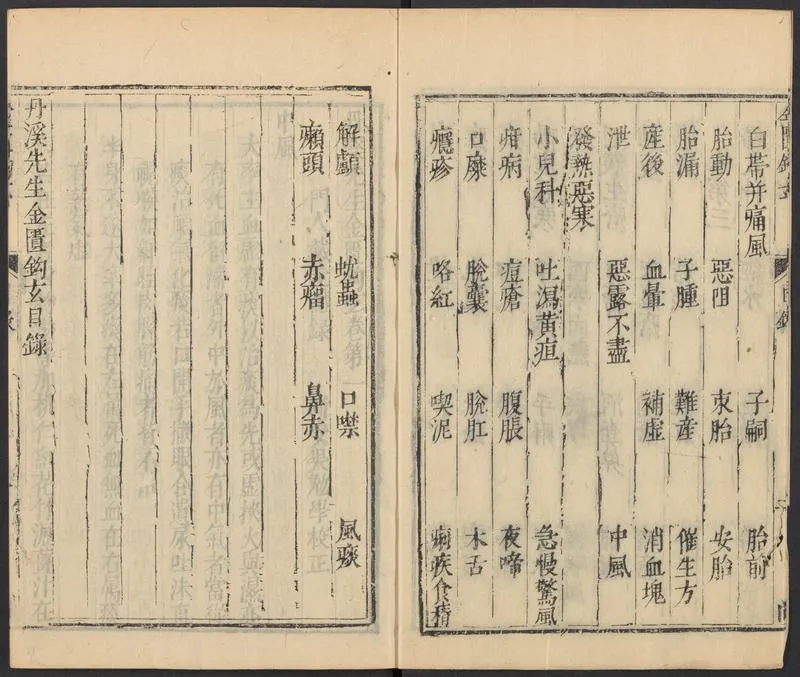 白帶并痛風 子嗣 胎前
胎動 惡阻 束胎 安胎
胎漏 子腫 難產 催生方
產後 血暈 補虛 消血塊
泄 惡露不盡 中風
發熱惡寒
小兒科 吐瀉黃疸 急慢驚風
疳病 痘瘡 腹脹 夜啼
口糜 脫囊 脫肛 木舌
癮疹 咯紅 喫泥 痢疾食積
解顱 蚘蟲 口噤 風痰
癩頭 赤瘤 鼻赤
丹溪先生金匱鈎玄目錄